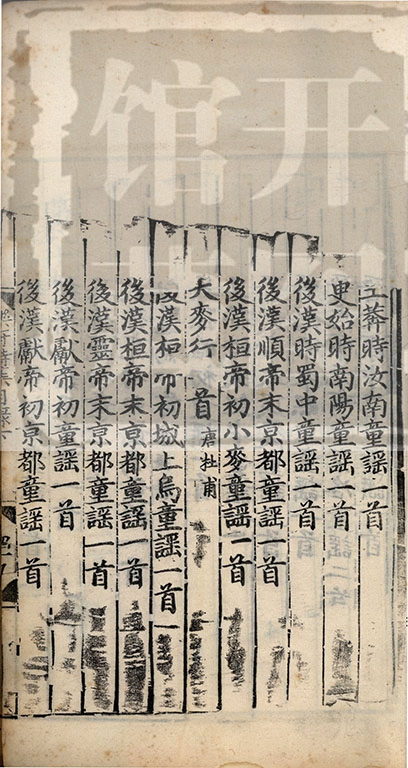 王莽時汝南童謡一首
更始時南陽童謡一首
後漢時蜀中童謡一首
後漢順帝末京都童謡一首
後漢桓帝初小麥童謡一首
大麥行一首 唐杜甫
後漢桓帝初城上烏童謡一首
後漢桓帝末京都童謡一首
後漢靈帝末京都童謡一首
後漢獻帝初童謡一首
後漢獻帝初京都童謡一首
開
馆